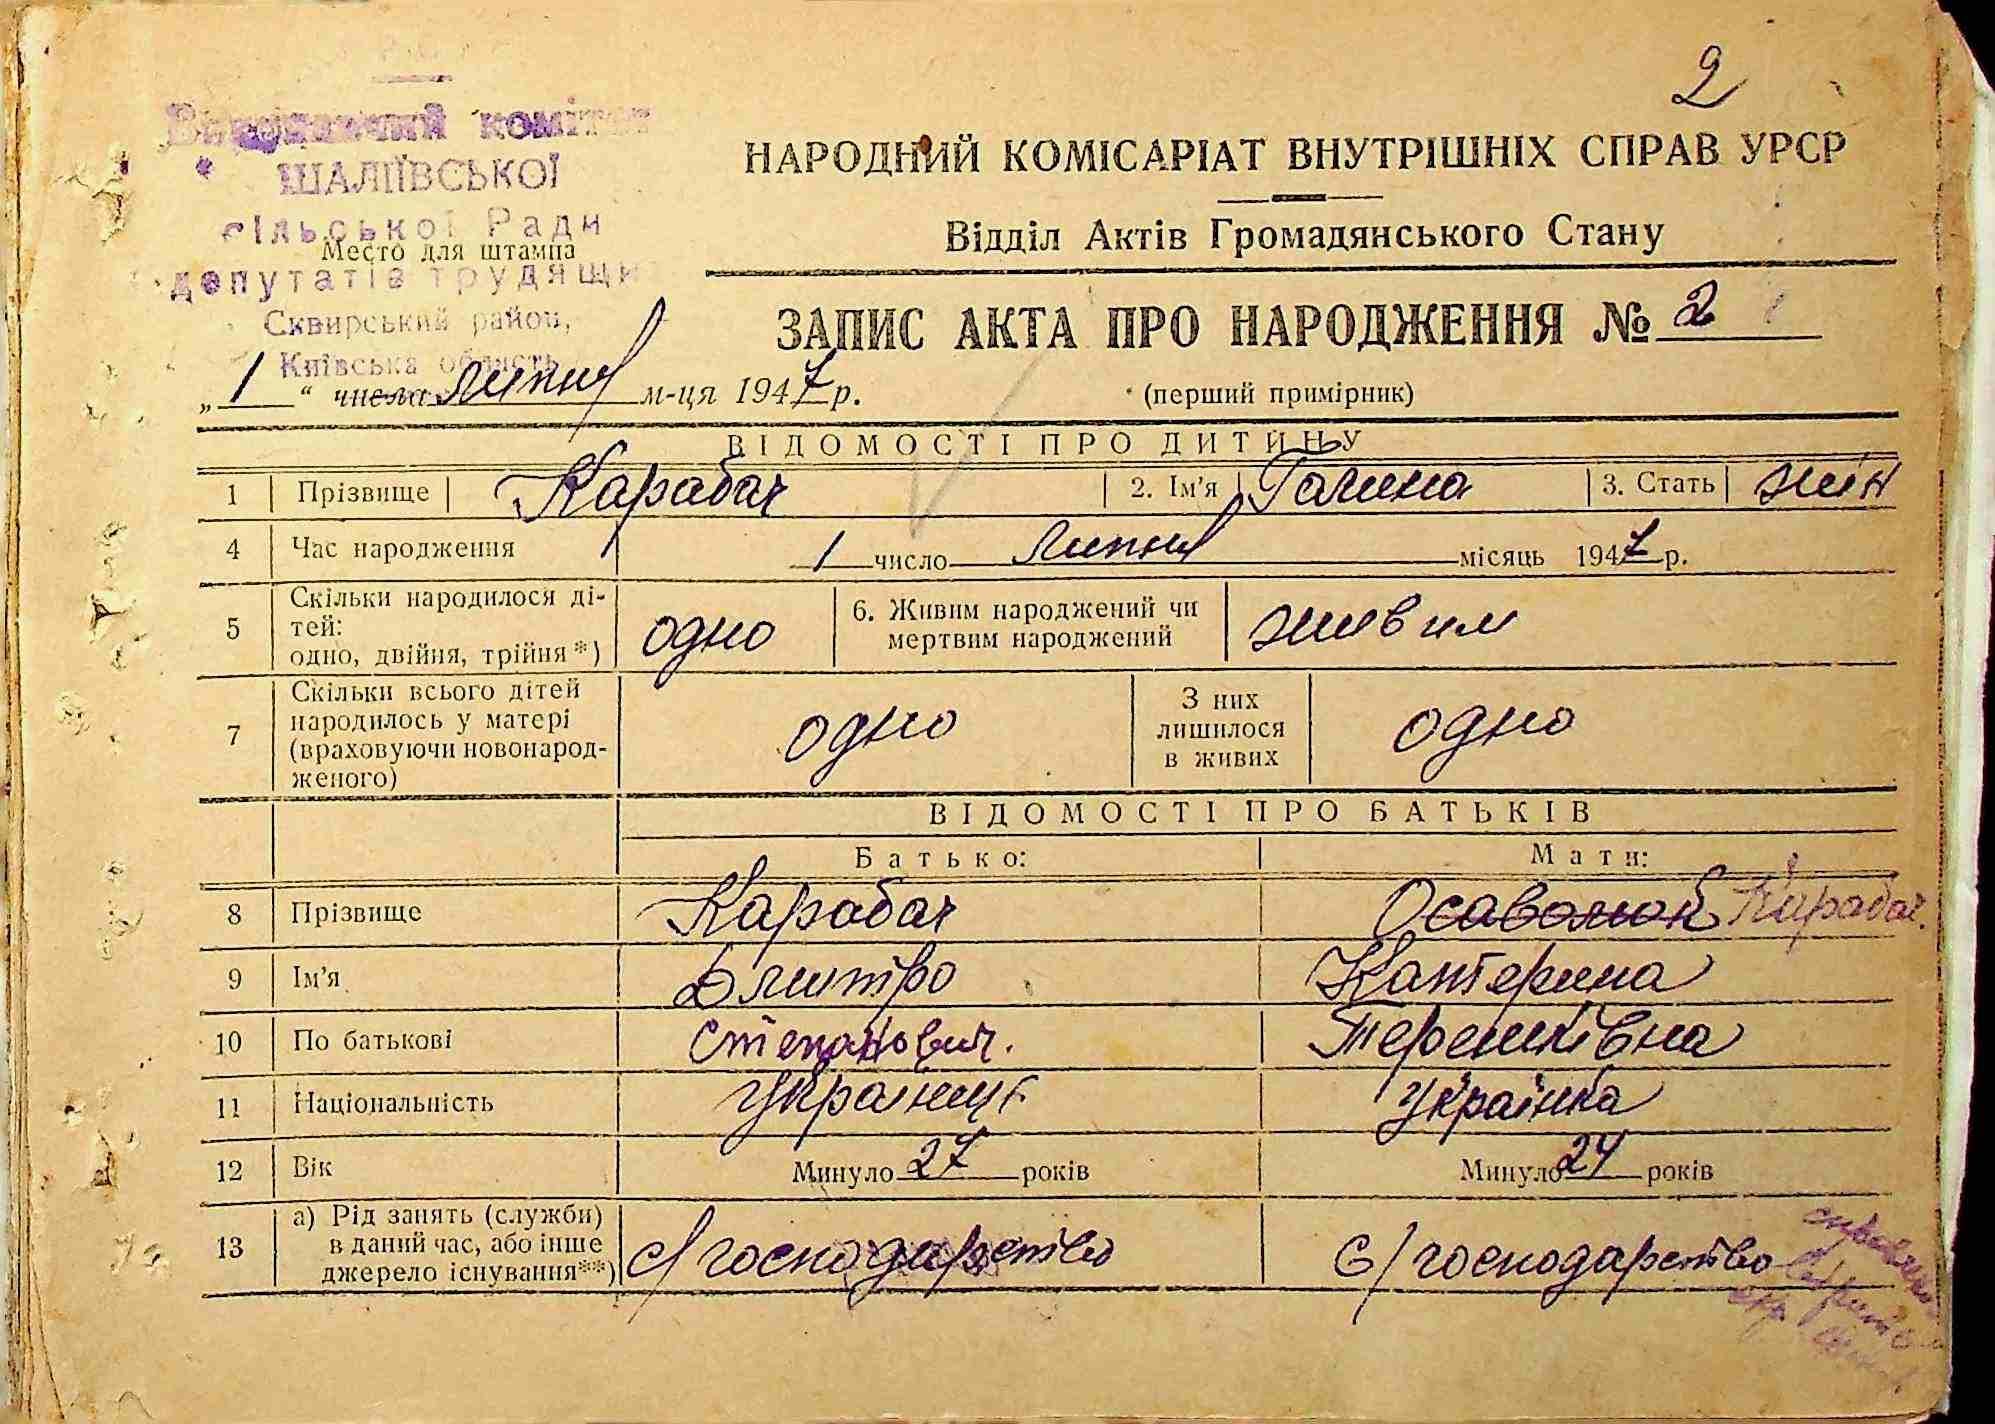 2
Виконавчий комітет
ШАЛІЇВСЬКОЇ
сільської Ради
Место для штампа
депутатів трудящи
Сквирський район,
Київська область
НАРОДНИЙ КОМІСАРІАТ ВНУТРІШНІХ СПРАВ УРСР
Відділ Актів Громадянського Стану
ЗАПИС АКТА ПРО НАРОДЖЕННЯ № 2
„ 1 “ числа липня м-ця 1947 р.
(перший примірник)
ВІДОМОСТІ ПРО ДИТИНУ
1 Прізвище Карабач 2. Ім'я Галина 3. Стать жін
4 Час народження 1 число липня місяць 1947 р.
5 Скільки народилося ді-
тей:
одно, двійня, трійня *) одно 6. Живим народжений чи
мертвим народжений живим
7 Скільки всього дітей
народилось у матері
(враховуючи новонарод-
женого) одно З них
лишилося
в живих одно
ВІДОМОСТІ ПРО БАТЬКІВ
Батько: Мати:
8 Прізвище Карабач Карабач.
9 Ім'я Дмитро Катерина
10 По батькові Степанович. Терешківна
11 Національність Українець Українка
12 Вік Минуло 27 років Минуло 24 років
13 а) Рід занять (служби)
в даний час, або інше
джерело існування**) с/господарство с/господарство